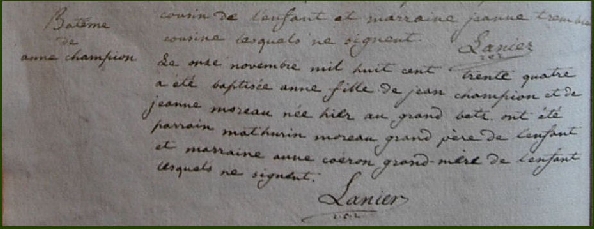 Batême
de
anne champion
cousin de l'enfant et marraine jeanne
cousine lesquels ne signent.
Lanier
Le onze novembre mil huit cent trente quatre
a été baptisée anne fille de jean champion et de
jeanne moreau née hier au grand ont été
parrain mathurin moreau grand père de l'enfant
et marraine anne coeron grand-mère de l'enfant
lesquels ne signent.
Lanier